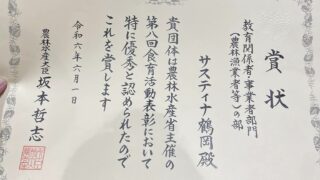 賞状
教育関係者・事業者部門
(農林漁業者等)の部
サスティナ鶴岡殿
貴団体は農林水産省主催の
第八回食育活動表彰において
特に優秀と認められたので
これを賞します
令和六年六月一日
農林水産大臣 坂本哲志